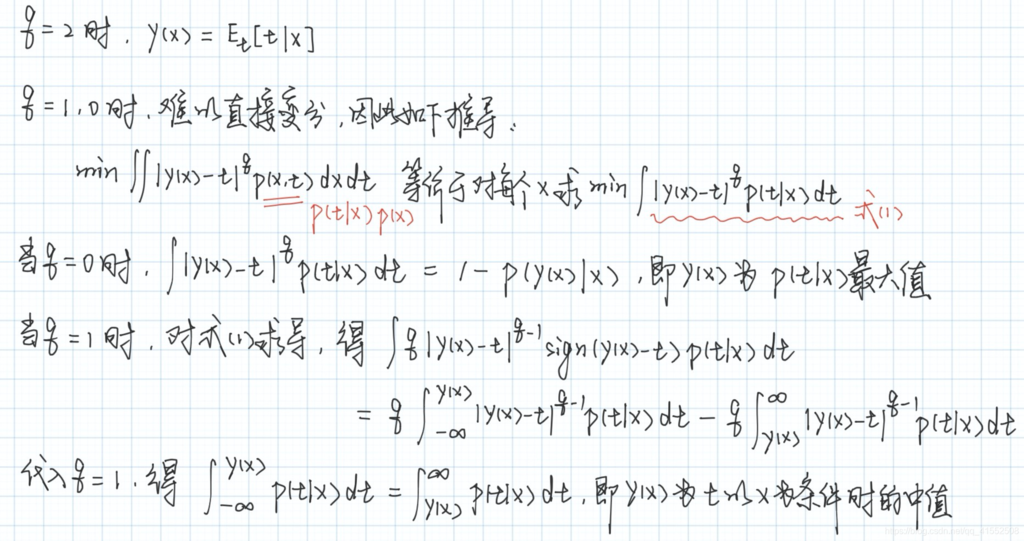 q=2时. y(x) = E_t[t|x]
q=1,0时. 难以直接变分, 因此如下推导:
min ∬|y(x)-t|^q p(x,t) dxdt 等价于对每个x求min ∫|y(x)-t|^q p(t|x)dt 式(1)
p(t|x)p(x)
当q=0时, ∫|y(x)-t|^q p(t|x)dt = 1 - p(y(x)|x), 即y(x)为 p(t|x)最大值
当q=1时, 对式(1)求导, 得 ∫q|y(x)-t|^{q-1} sign(y(x)-t)p(t|x)dt
= q∫_{-∞}^{y(x)} |y(x)-t|^{q-1} p(t|x)dt - q∫_{y(x)}^{∞} |y(x)-t|^{q-1} p(t|x)dt
代入q=1. 得 ∫_{-∞}^{y(x)} p(t|x)dt = ∫_{y(x)}^{∞} p(t|x)dt, 即y(x)为t以x为条件时的中值